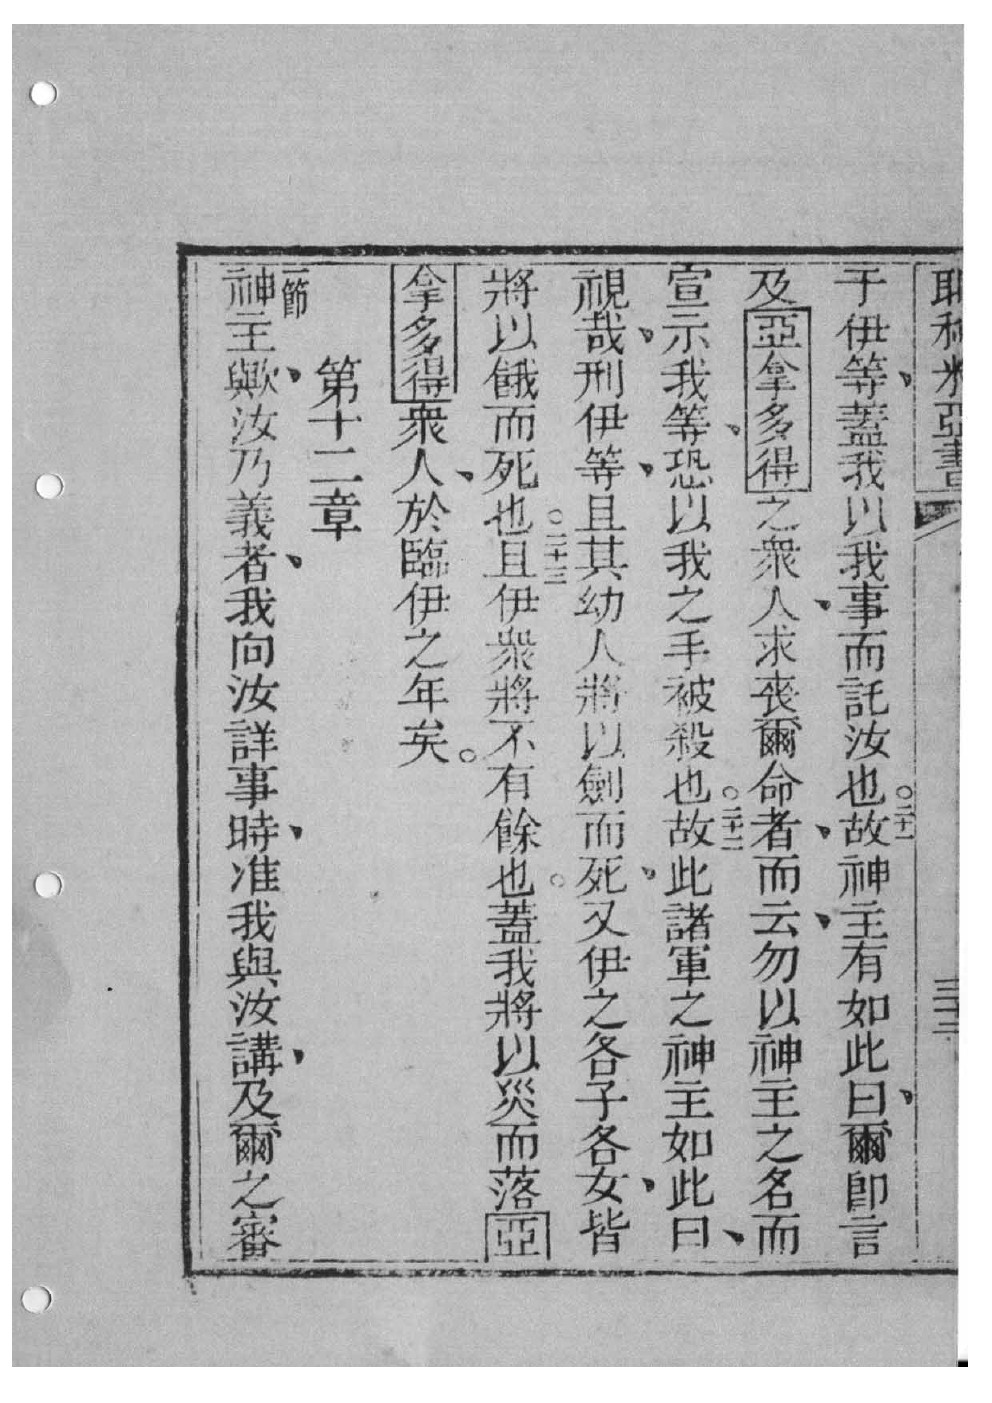 耶利米亞書 三十三
于伊等、蓋我以我事而託汝也。二十一故神主有如此曰、爾卽言
及亞拿多得之衆人、求丧爾命者、而云、勿以神主之名而
宣示我等、恐以我之手被殺也。二十二故此諸軍之神主如此曰、
視哉、刑伊等、且其幼人將以劍而死、又伊之各子各女、皆
將以餓而死也。二十三且伊衆將不有餘也。蓋我將以災而落亞
拿多得衆人、於臨伊之年矣。
第十二章
一節神主歟、汝乃義者、我向汝詳事時、准我與汝講、及爾之審